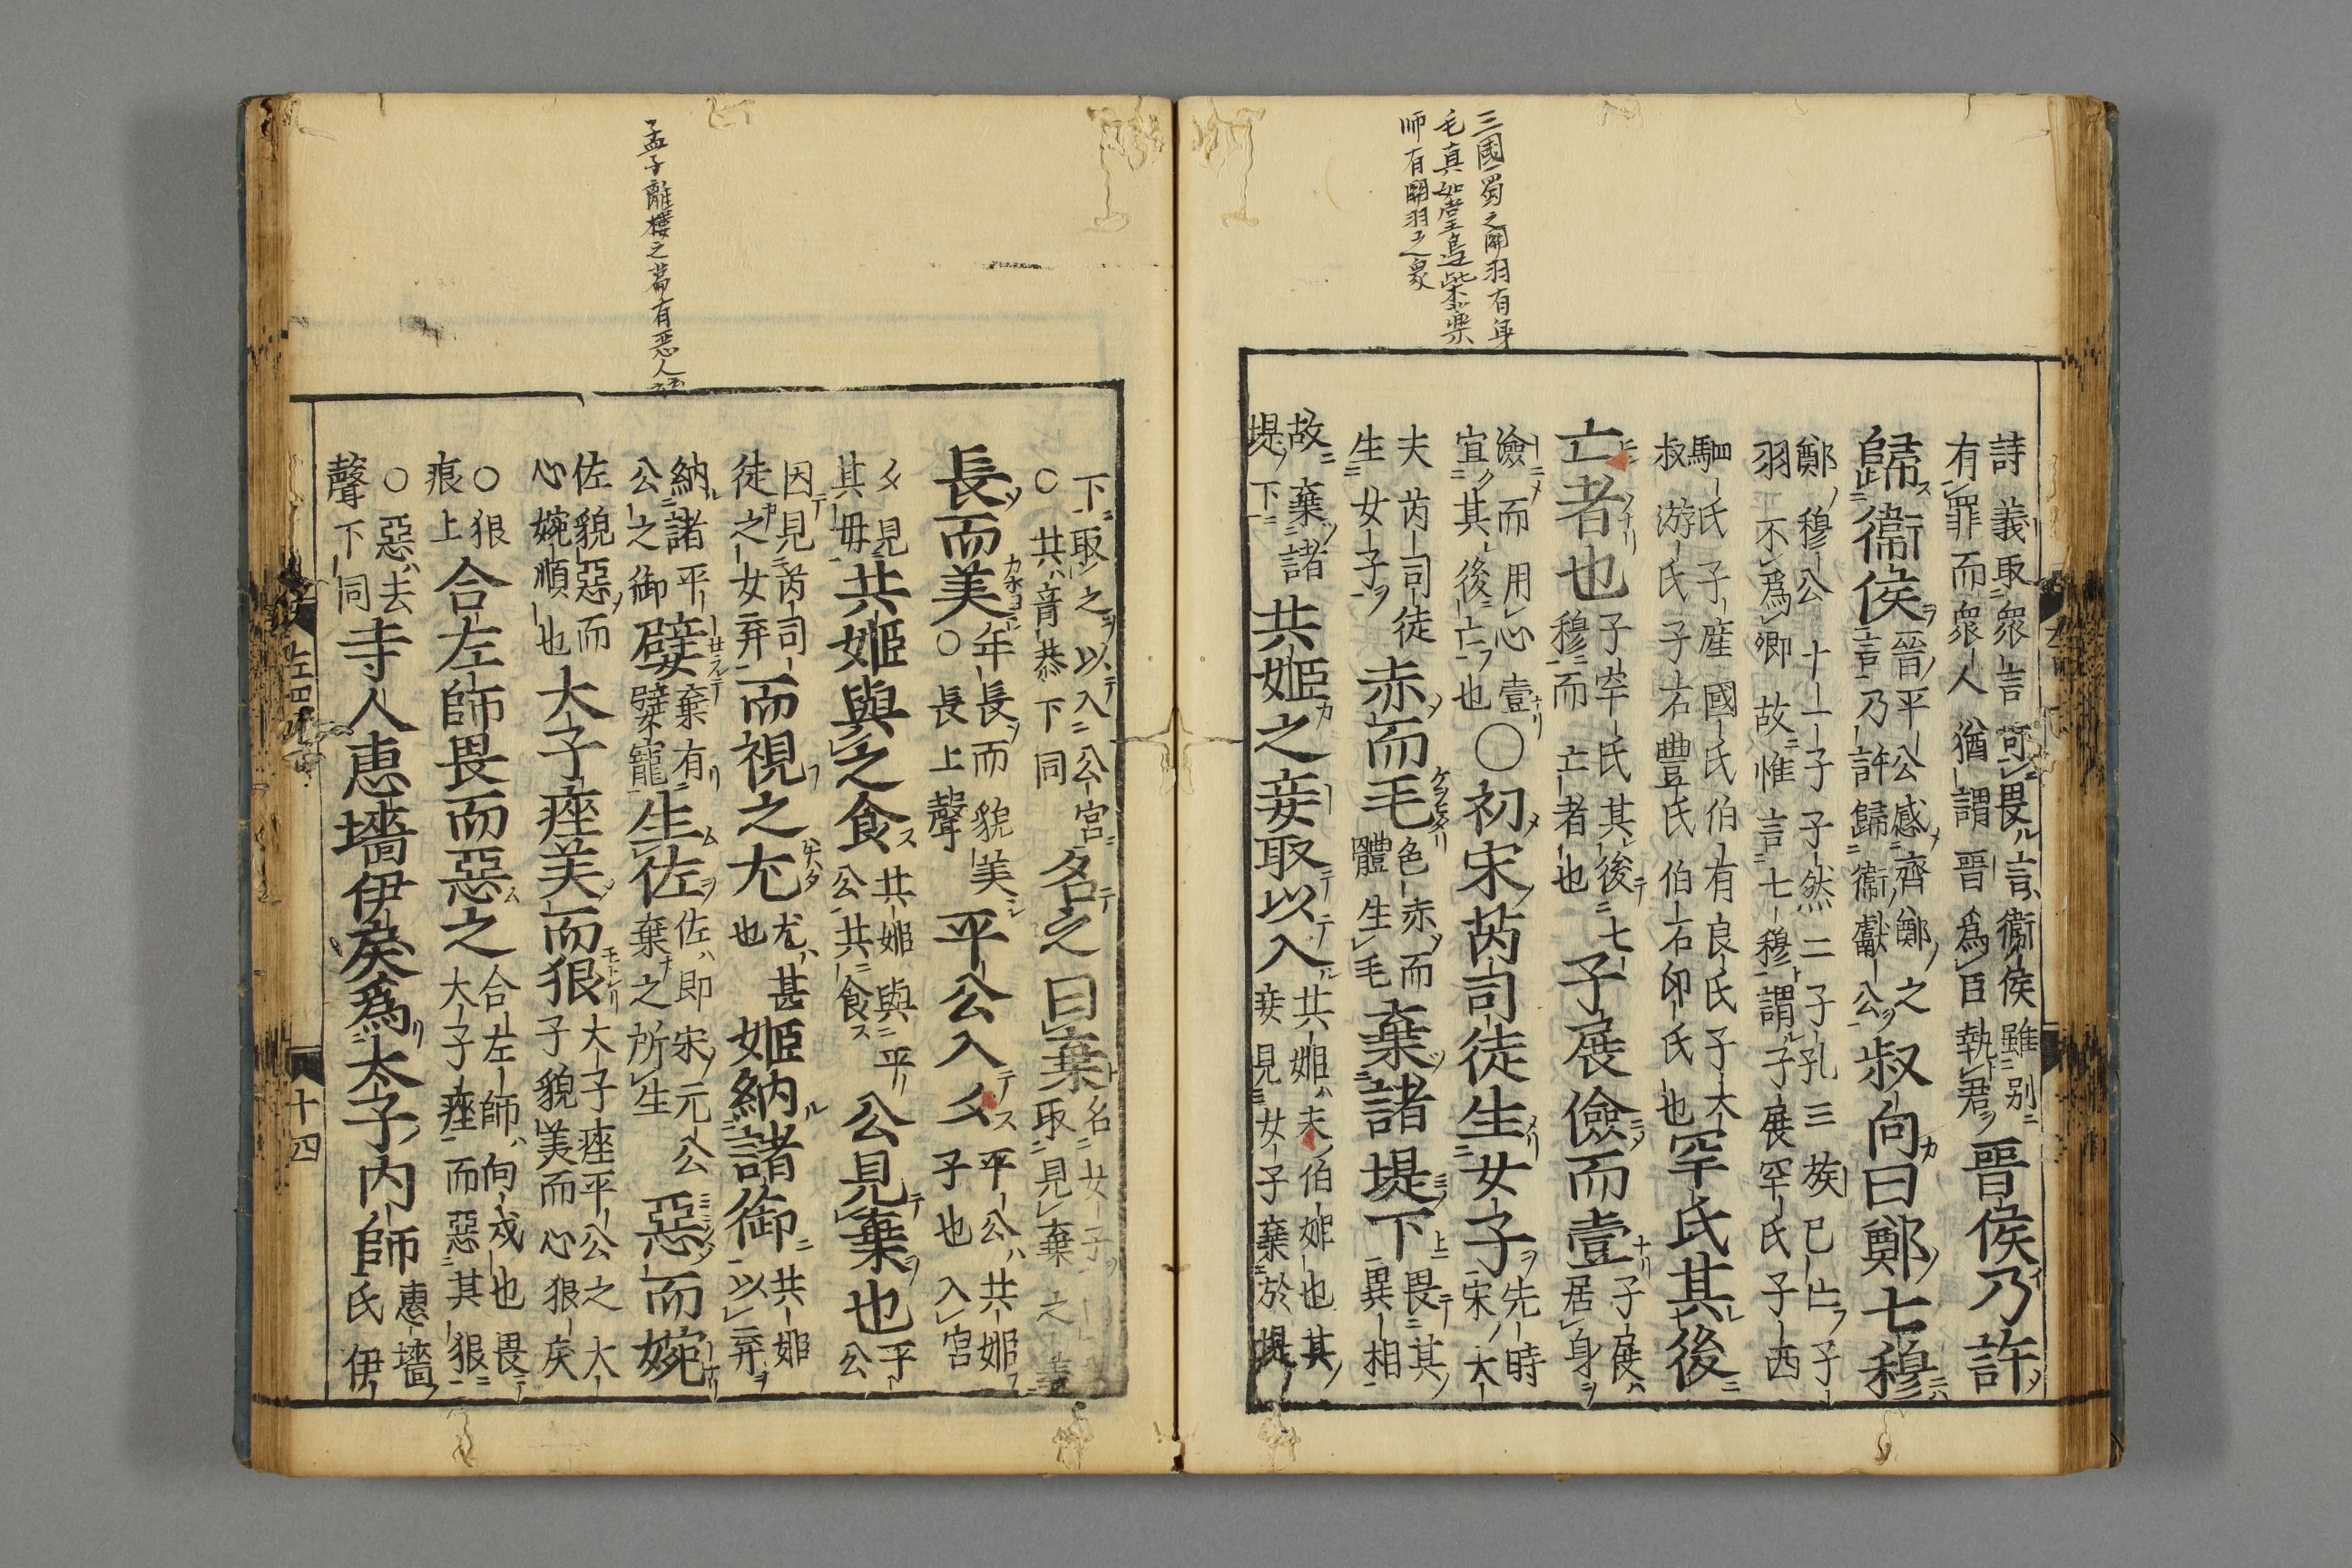 三國蜀之関羽有身
毛真如堂真柴楽
师有関羽之象
詩義取衆言可畏言衞侯雖別
有罪而衆人猶謂晉爲臣執君
晉侯乃許
歸衞侯
晉平公感齊鄭之
言乃許歸衞獻公
叔向曰鄭七穆
鄭穆公十一子子然二子孔三族已亡子
羽不爲卿故惟言七穆謂子展罕氏子西
駟氏子産國氏伯有良氏子大
叔游氏子石豐氏伯石印氏也
罕氏其後
亡者也
子罕氏其後七
穆而亡者也
子展儉而壹
子展
居身
儉而用心壹
宜其後亡也
○初宋芮司徒生女子
先時
宋大
夫芮司徒
生女子
赤而毛
色赤而
體生毛
棄諸堤下
畏其
異相
故棄諸
堤下
共姬之妾取以入
共姬ハ宋伯姬也其
妾見女子棄於堤
孟子離樓之篇有惡人
下取之以入公宮
○共ハ音恭下同
名之曰棄
名女子
取見棄之
長而美
年長而貌美
○長上聲
平公入夕
平公ハ共姬
子也入宮
夕見
其母
共姬與之食
共姬與平
公共食
公見棄也
平
公
因見芮司
徒之女弃
而視之尤
尤ハ甚
也
姬納諸御
共姬
以弃
納諸平
公之御
嬖
棄有
嬖寵
生佐
佐ハ即宋元公
棄之所生
惡而婉
佐貌惡而
心婉順也
大子痤美而狠
大子痤平公之大
子貌美而心狠戾
○狠
痕上
合左師畏而惡之
合左師ハ向戌也畏
大子痤而惡其狠
○惡ハ去
聲下同
寺人惠墻伊戾爲太子內師
惠墻
氏伊
左四
十四